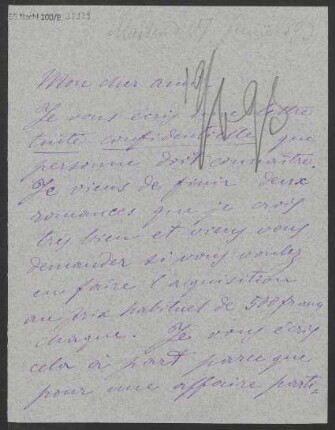 55 Nachl 100/B,
Mon cher ami
Je vous écris une lettre
toute confidentielle que
personne doit connaître.
Je viens de finir deux
romances que je crois
très bien et viens vous
demander si vous voulez
en faire l'aquisition
au prix habituel de 500 francs
chaque. Je vous écris
cela à part parce que
pour une affaire parti-